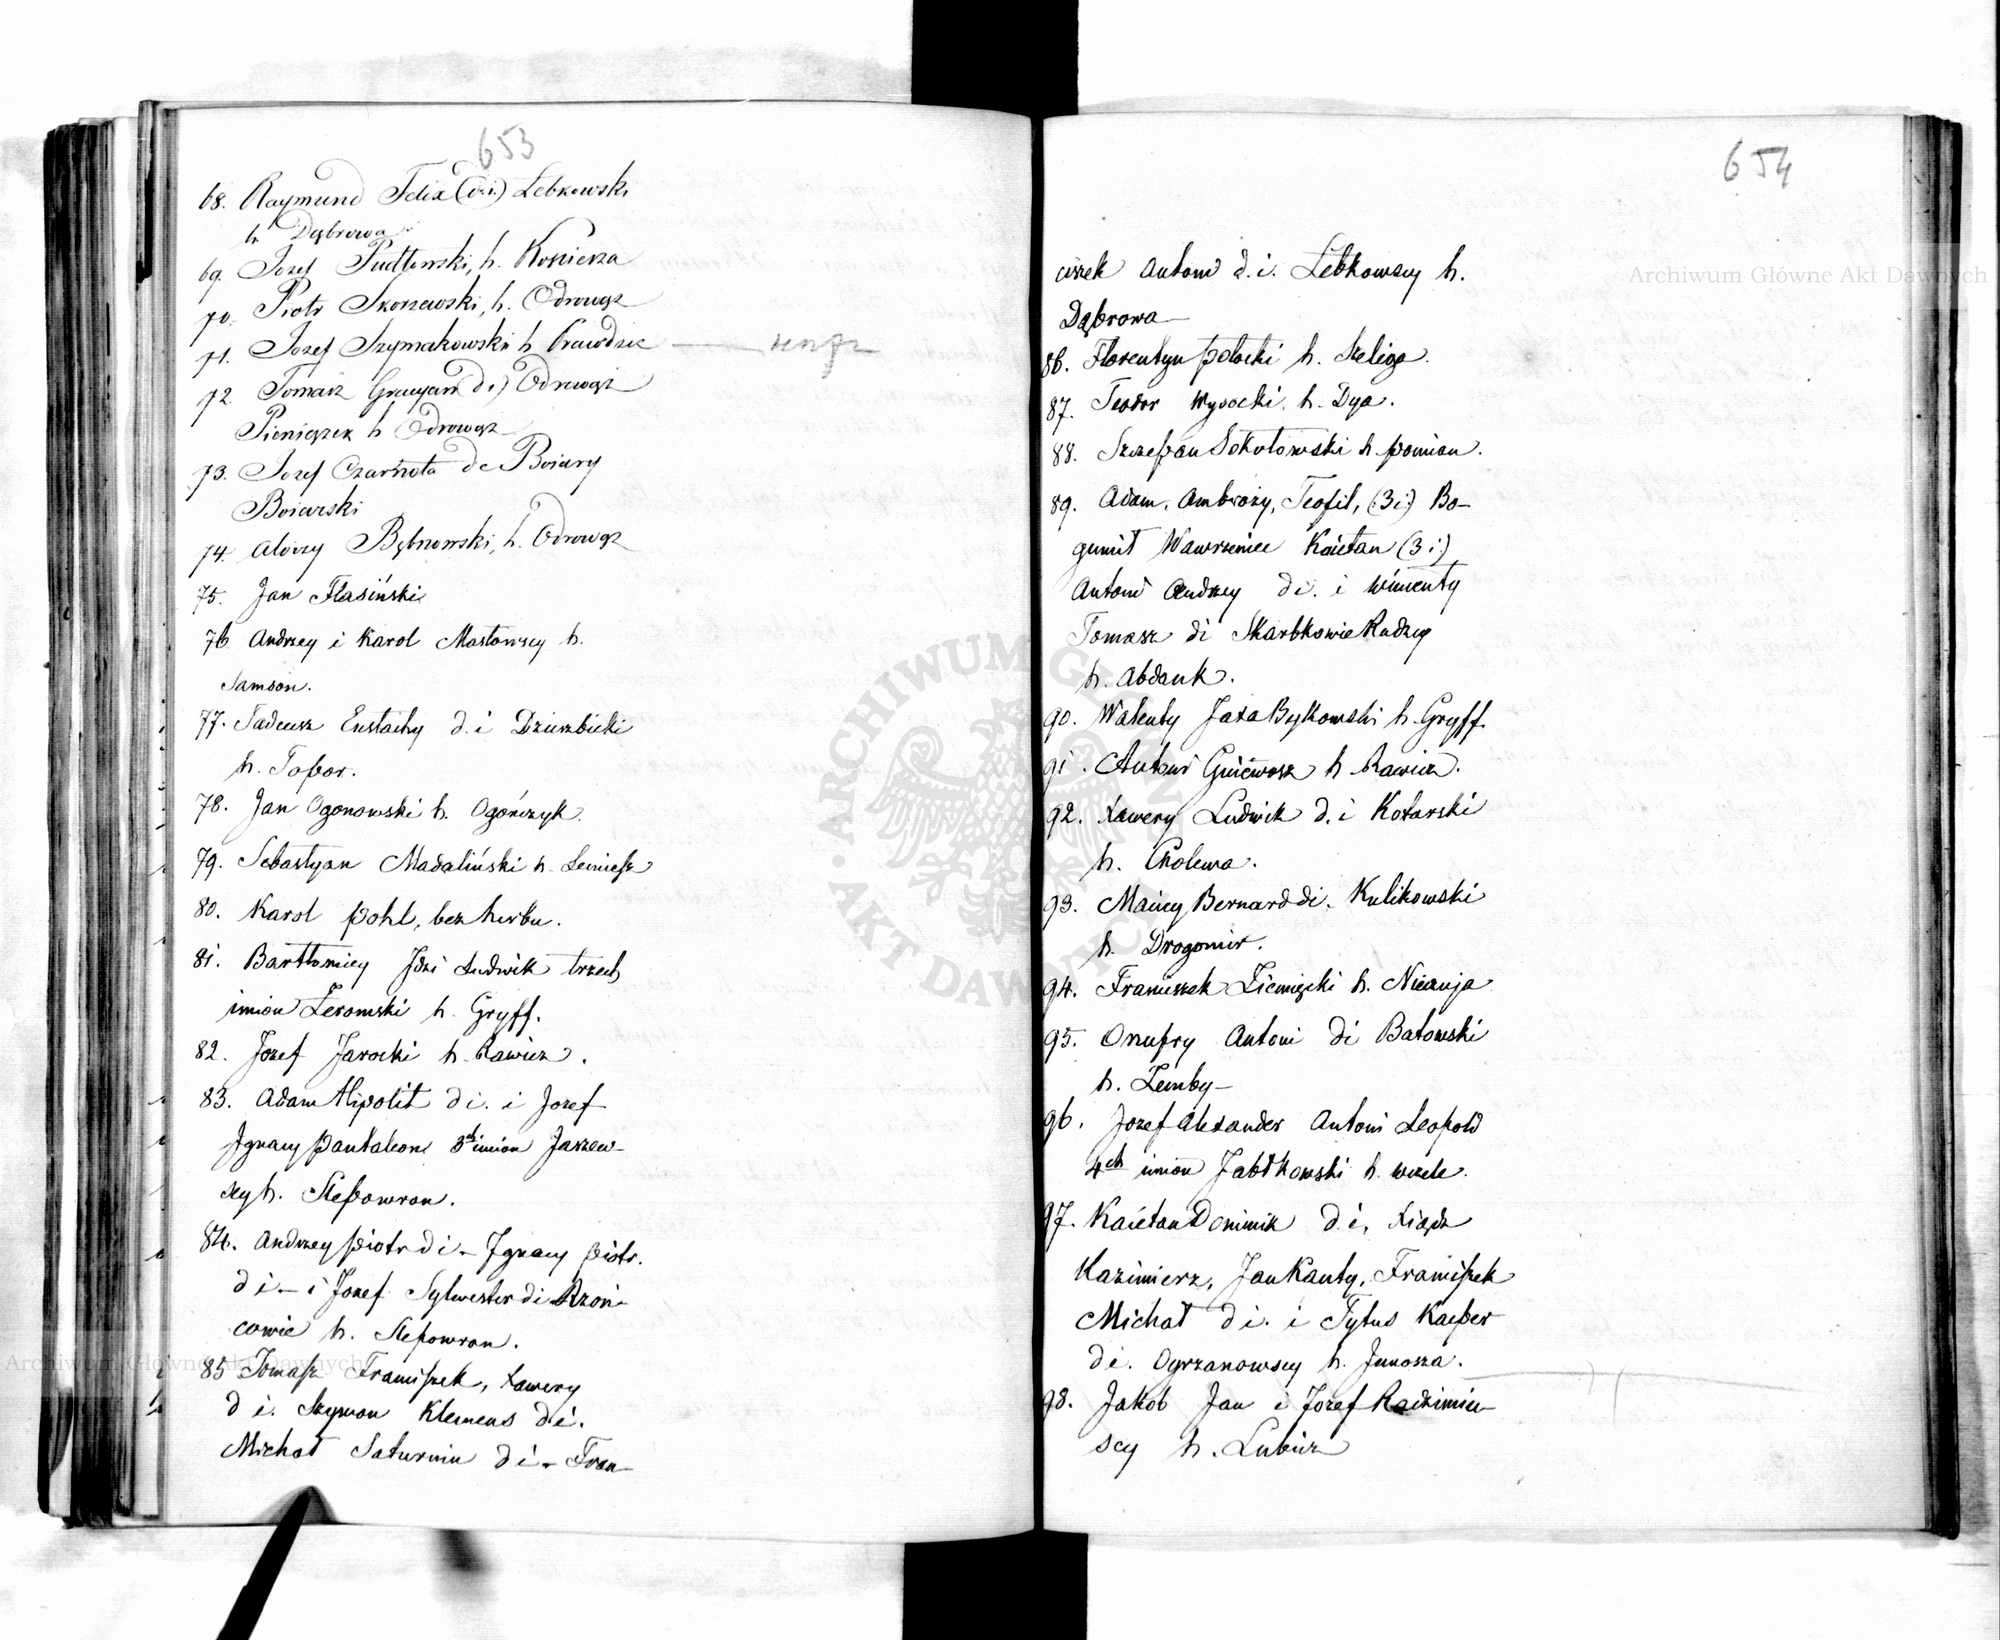 653
68. Raymund Felix (d.i.) Lebkowski
h Dąbrowa
69. Jozef Pudłowski, h. Kosciesza
70. Piotr Skorzewski, h. Odrowąż
71. Jozef Szymakowski h Prawdzic
72. Tomasz d.i) Odrowąż
Pieniążek h Odrowąż
73. Jozef Czarnota de Boiary
Boiarski
74. Aloizy Bębnowski, h. Odrowąż
75. Jan Flasiński
76 Andrzey i Karol Masłowscy h.
Samson.
77. Tadeusz Eustachy d. i Dzierzbicki
h. Topor.
78. Jan Ogonowski h. Ogończyk.
79. Sebastyan Madaliński h. Lemiesz
80. Karol Pohl, bez herbu.
81. Bartłomiey Jdzi Ludwik trzech
imion Żeromski h. Gryff.
82. Jozef Jarocki h. Rawicz.
83. Adam Hipolit d i. i Jozef
Jgnacy Pantaleon 3ch imion Jaszew-
scy h. Slepowron.
84. Andrzey Piotr d i - Jgnacy Piotr.
d i - i Jozef Sylwester di Rzoń-
cowie h. Slepowron.
85 Tomasz Franciszek, Xawery
d i. Szymon Klemens d i.
Michał Saturnin d i - Fran-
654
ciszek Antoni d. i. Lebkowscy h.
Dąbrowa
86. Florentyn Połocki h. Szeliga.
87. Teodor Wysocki. h. Dya.
88. Szczepan Sokołowski h. Pomian.
89. Adam, Ambroży, Teofil, (3 i) Bo-
gumił Wawrzeniec Kaietan (3 i)
Antoni Andrzey d i. i Wincenty
Tomasz di Skarbkowie Rudzcy
h. Abdank.
90. Walenty Jaxa Bykowski h. Gryff.
91. Antoni Gniewosz h Rawicz.
92. Xawery Ludwik d. i Kotarski
h. Cholewa.
93. Maciey Bernard di. Kulikowski
h. Drogomir.
94. Franciszek Ziemięcki h. Nieczuja
95. Onufry Antoni di Batowski
h. Zemby-
96. Jozef Alexander Antoni Leopold
4ch imion Jabłkowski h. wczele.
97. Kaietan Dominik d. i, Xiądz
Kazimierz, Jan Kanty, Franciszek
Michał d i. i Tytus Kacper
di. Ogrzanowscy h. Junosza.
98. Jakob Jan i Jozef Radzimin-
scy h. Lubicz
Archiwum Główne Akt Dawnych
Archiwum Główne Akt Dawnych